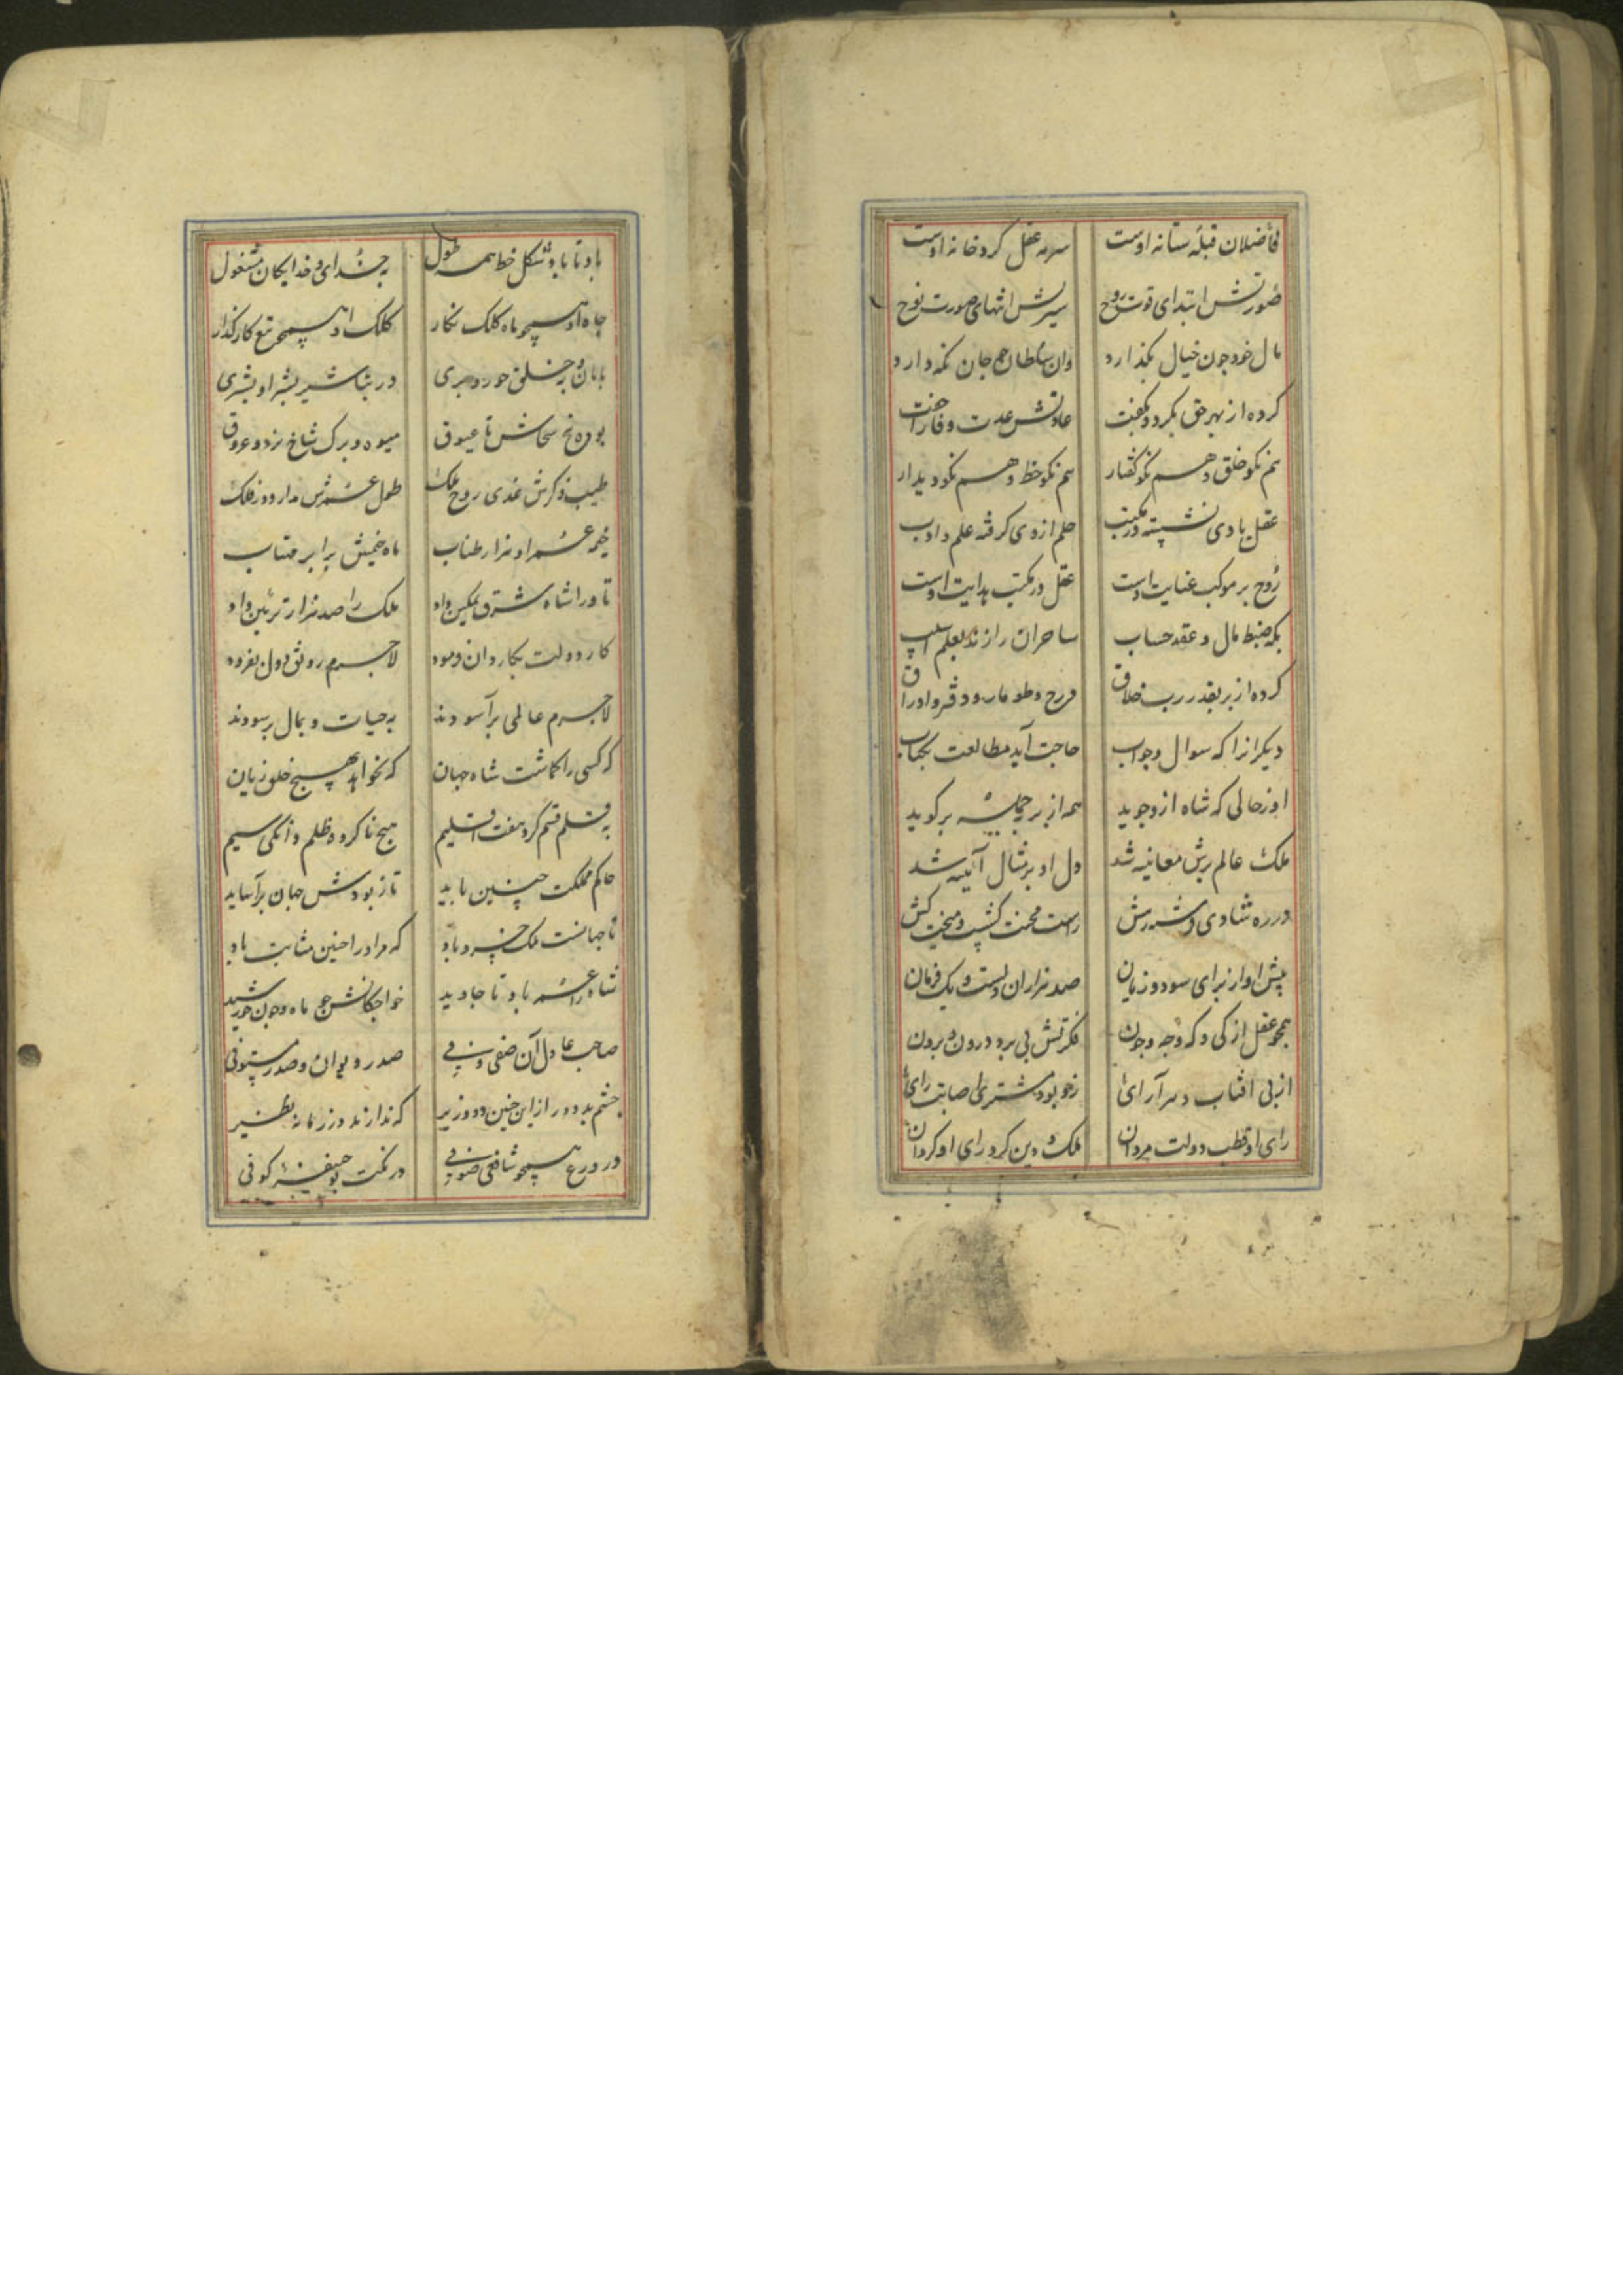 فاضلان قبله ستانه اوست سرمه عقل گرد خانه اوست
صورتش ابتدای قوت روح سیرتش انتهای صورت نوح
مال خود چون خیال بگذارد وان سلطان چو جان نگه دارد
کرده از بهر حق بکرد و بگفت عادتش عدت و فا را جفت
هم نکو خلق و هم نکو گفتار هم نکو خط و هم نکو دیدار
عقل با وی نشسته در مکتب حلم از وی گرفته علم و ادب
روح بر موکب عنایت اوست عقل در مکتب هدایت اوست
بگه ضبط مال و عقد حساب ساحران را زند بعلم
کرده از بر بقدر رب خلاق درج و طومار و دفتر و اوراق
دیگرانرا که سوال و جواب حاجت آید مطالعت بکتاب
او ز حالی که شاه ازو جوید همه از بر چمله برگوید
ملک عالم برش معاینه شد دل او بر مثال آینه شد
در ره شادی و شره رمش راست محنت کش و
پیش او از برای سود و زیان صد هزاران دلست و یک فرمان
همچو عقل از کی و که و چه و چون فکرتش پی برد درون و برون
از پی افتاب دسر آرای زحو بود مشتری اصابت رای
رای او قطب دولت مردان ملک و دین کرد رای او گردان
باد تا باد شکل خط همه طول به خدای و خدایگان مشغول
جاه او همچو ماه کلک نگار کلک او همچو تیغ کارگذار
بامان و به خلق حور و پری در بشاشیر بشر او بشری
بوده بیخ سخاش تا عیوق میوه و برگ شاخ نزد و عروق
طیب ذکرش غذی روح ملک طول عمرش مدار دور فلک
خیمه عمر او هزار طناب ماه خیمش برابر مهتاب
تا ورا شاه شرق تمکین داد ملک را صد هزار تزئین داد
کار دولت بکاردان فرمود لاجرم رونق دول بفزود
لاجرم عالمی برآسودند به حیات و بمال برسودند
که کسی را گماشت شاه جهان که نخواهد بهیچ خلق زیان
به قلم قسم کرد هفت اقلیم هیچ ناکرده ظلم دانگی سیم
حاکم مملکت چنین باید تا ز بودش جهان برآساید
تا جهانست ملک خسرو باد که مراورا چنین مثابت باد
شاه را عمر باد تا جاوید خواجگانش چو ماه و چون خورشید
صاحب عادل آن صفی و فی صدر دیوان و صدر مستوفی
چشم بد دور از این چنین دو وزیر که ندارند در زمانه نظیر
در ورع همچو شافعی صوفی در نکت بوحنیفه کوفی